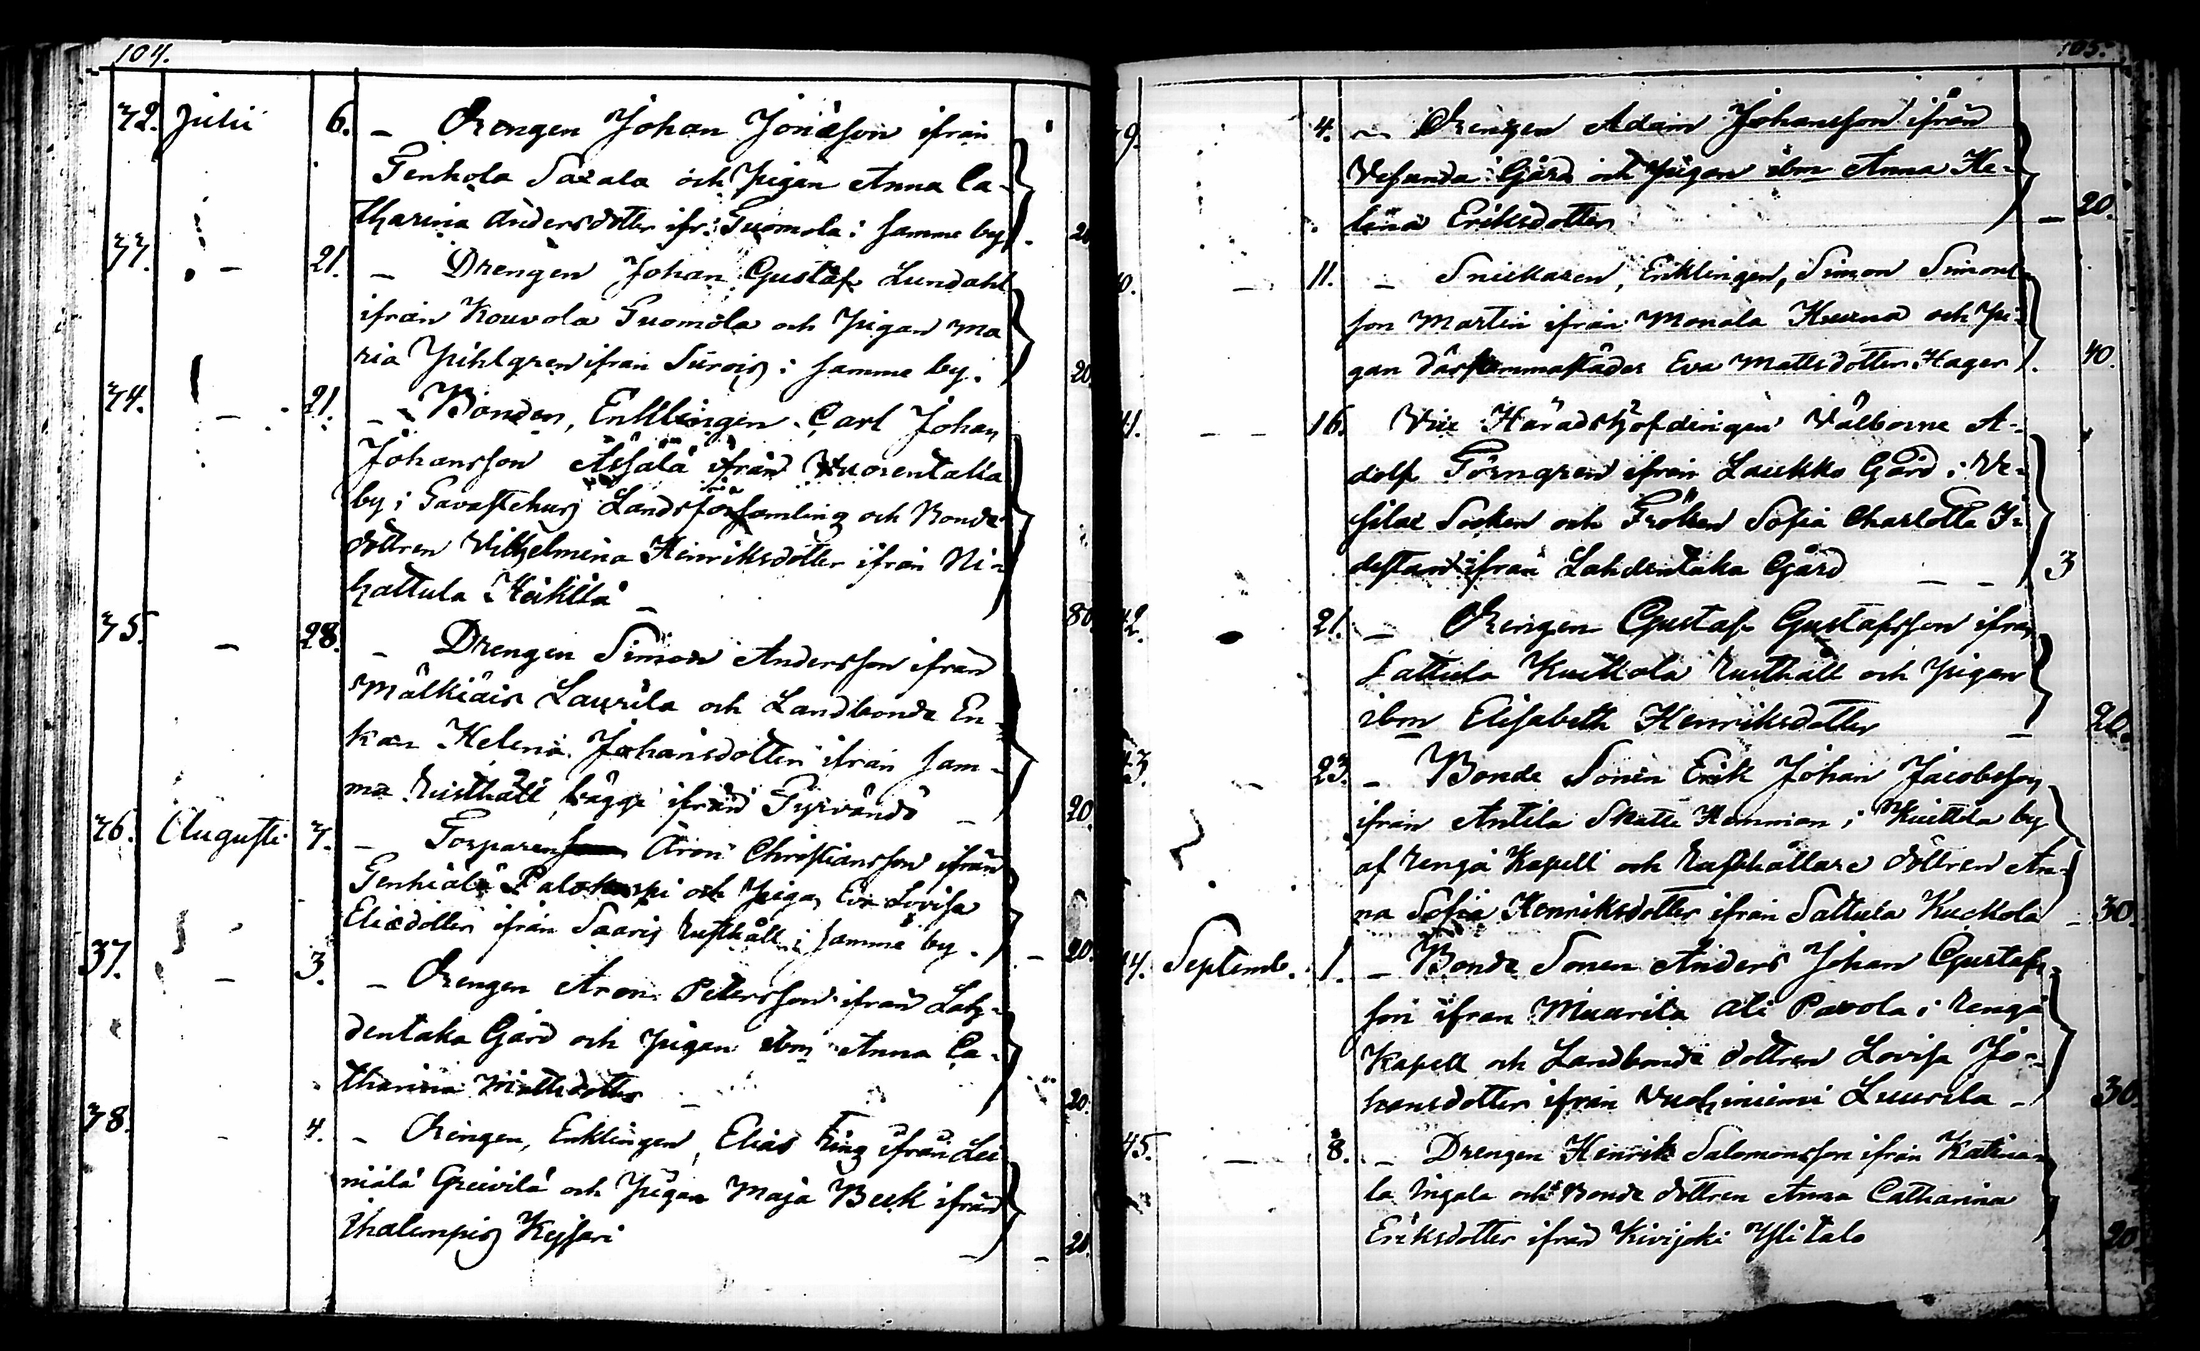 104.
32. Julii 6. - Drengen Johan Jonasson ifrån
Tenhola Sarala och Pigan Anna Ca-
tharina Andersdotter ifr: Tuomola i samme by. 20
33. - 21. - Drengen Johan Gustaf Lundahl
ifrån Kouvola Tuomola och Pigan Ma
ria Pihlgren ifrån Surois i samme by. 20.
34. - 21. - Bonden, Enklingen Carl Johan
Johansson Assala ifrån Vuorentaka
by i Tavastehus Landsförsamling och Bonde
dottren Vilhelmina Henriksdotter ifrån Ni-
hattula Heikkilä - 80
35. - 28. - Drengen Simon Andersson ifrån
Mälkiäis Laurila och Landbonde En-
kan Helena Johansdotter ifrån sam-
ma Rusthåll bägge ifrån Tyrvändö - 20.
36. Augusti 3. - Torparen Aron Christiansson ifrån
Tenhiälä och Pigan Eva Lovisa
Eliædotter ifrån Saaris Rusthåll i samme by. - 20.
37. - 3. - Drengen Aron Petersson ifrån Lah-
dentaka Gård och Pigan ibm Anna Ca-
tharina Mattsdotter - 20.
38. - 4. - Drengen, Enklingen, Elias Ring ifrån Lei
niälä Greivilä och Pigan Maja Beck ifrån
Ihalempis Keysari - 20.
105.
39. 4. - Drengen Adam Johansson ifrån
Vesunda Gård och Pigan ibm Anna He-
lena Eriksdotter - 20.
40. - 11. - Snickaren, Enklingen, Simon Simons
son Martin ifrån Monala Kurna och Pi-
gan därsammastädes Eva Mattsdotter Hager 40.
41. - - 16. Vice Häradshöfdingen Välborne A-
dolf Törngren ifrån Laukko Gård i Ve-
silax Socken och Fröken Sofia Charlotta I-
destam ifrån Lahdentaka Gård - - 3
42. 21. - Drengen Gustaf Gustafsson ifrån
Sattula Kuckola Rusthåll och Pigan
ibm Elisabeth Henriksdotter - 20.
43. - 23. - Bonde Sonen Erik Johan Jacobsson
ifrån Antila Skatte Hemman i Kuittila by
af Rengo Kapell och Rusthållare dottren An-
na Sofia Henriksdotter ifrån Sattula Kuckola - 30.
44. Septemb. 1. - Bonde Sonen Anders Johan Gustafs-
son ifrån Muurila Ali Pavola i Rengo
Kapell och Landbonde dottren Lovisa Jo-
hansdotter ifrån Vuohiniemi Luurila - 30.
45. - 8. - Drengen Henrik Salomonsson ifrån Katina-
la Ingala och Bonde dottren Anna Catharina
Eriksdotter ifrån Kivijoki Ylitalo 20.